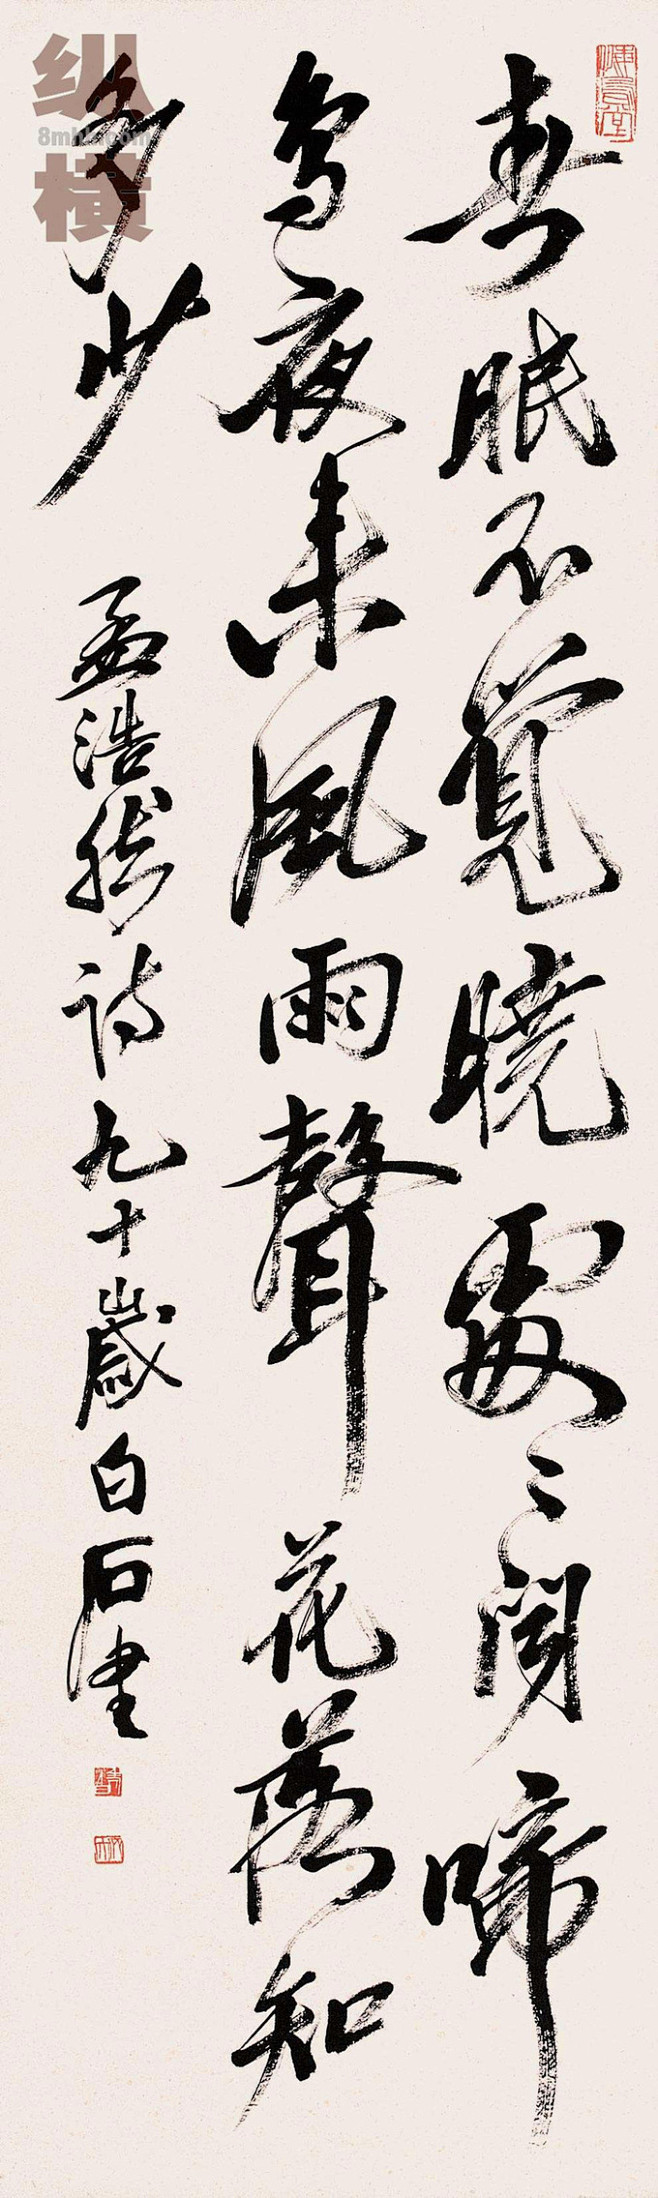 春眠不覺曉處〻聞啼
鳥夜来風雨聲花落知
多少
孟浩然詩九十歲白石書
纵横
8mhh.com